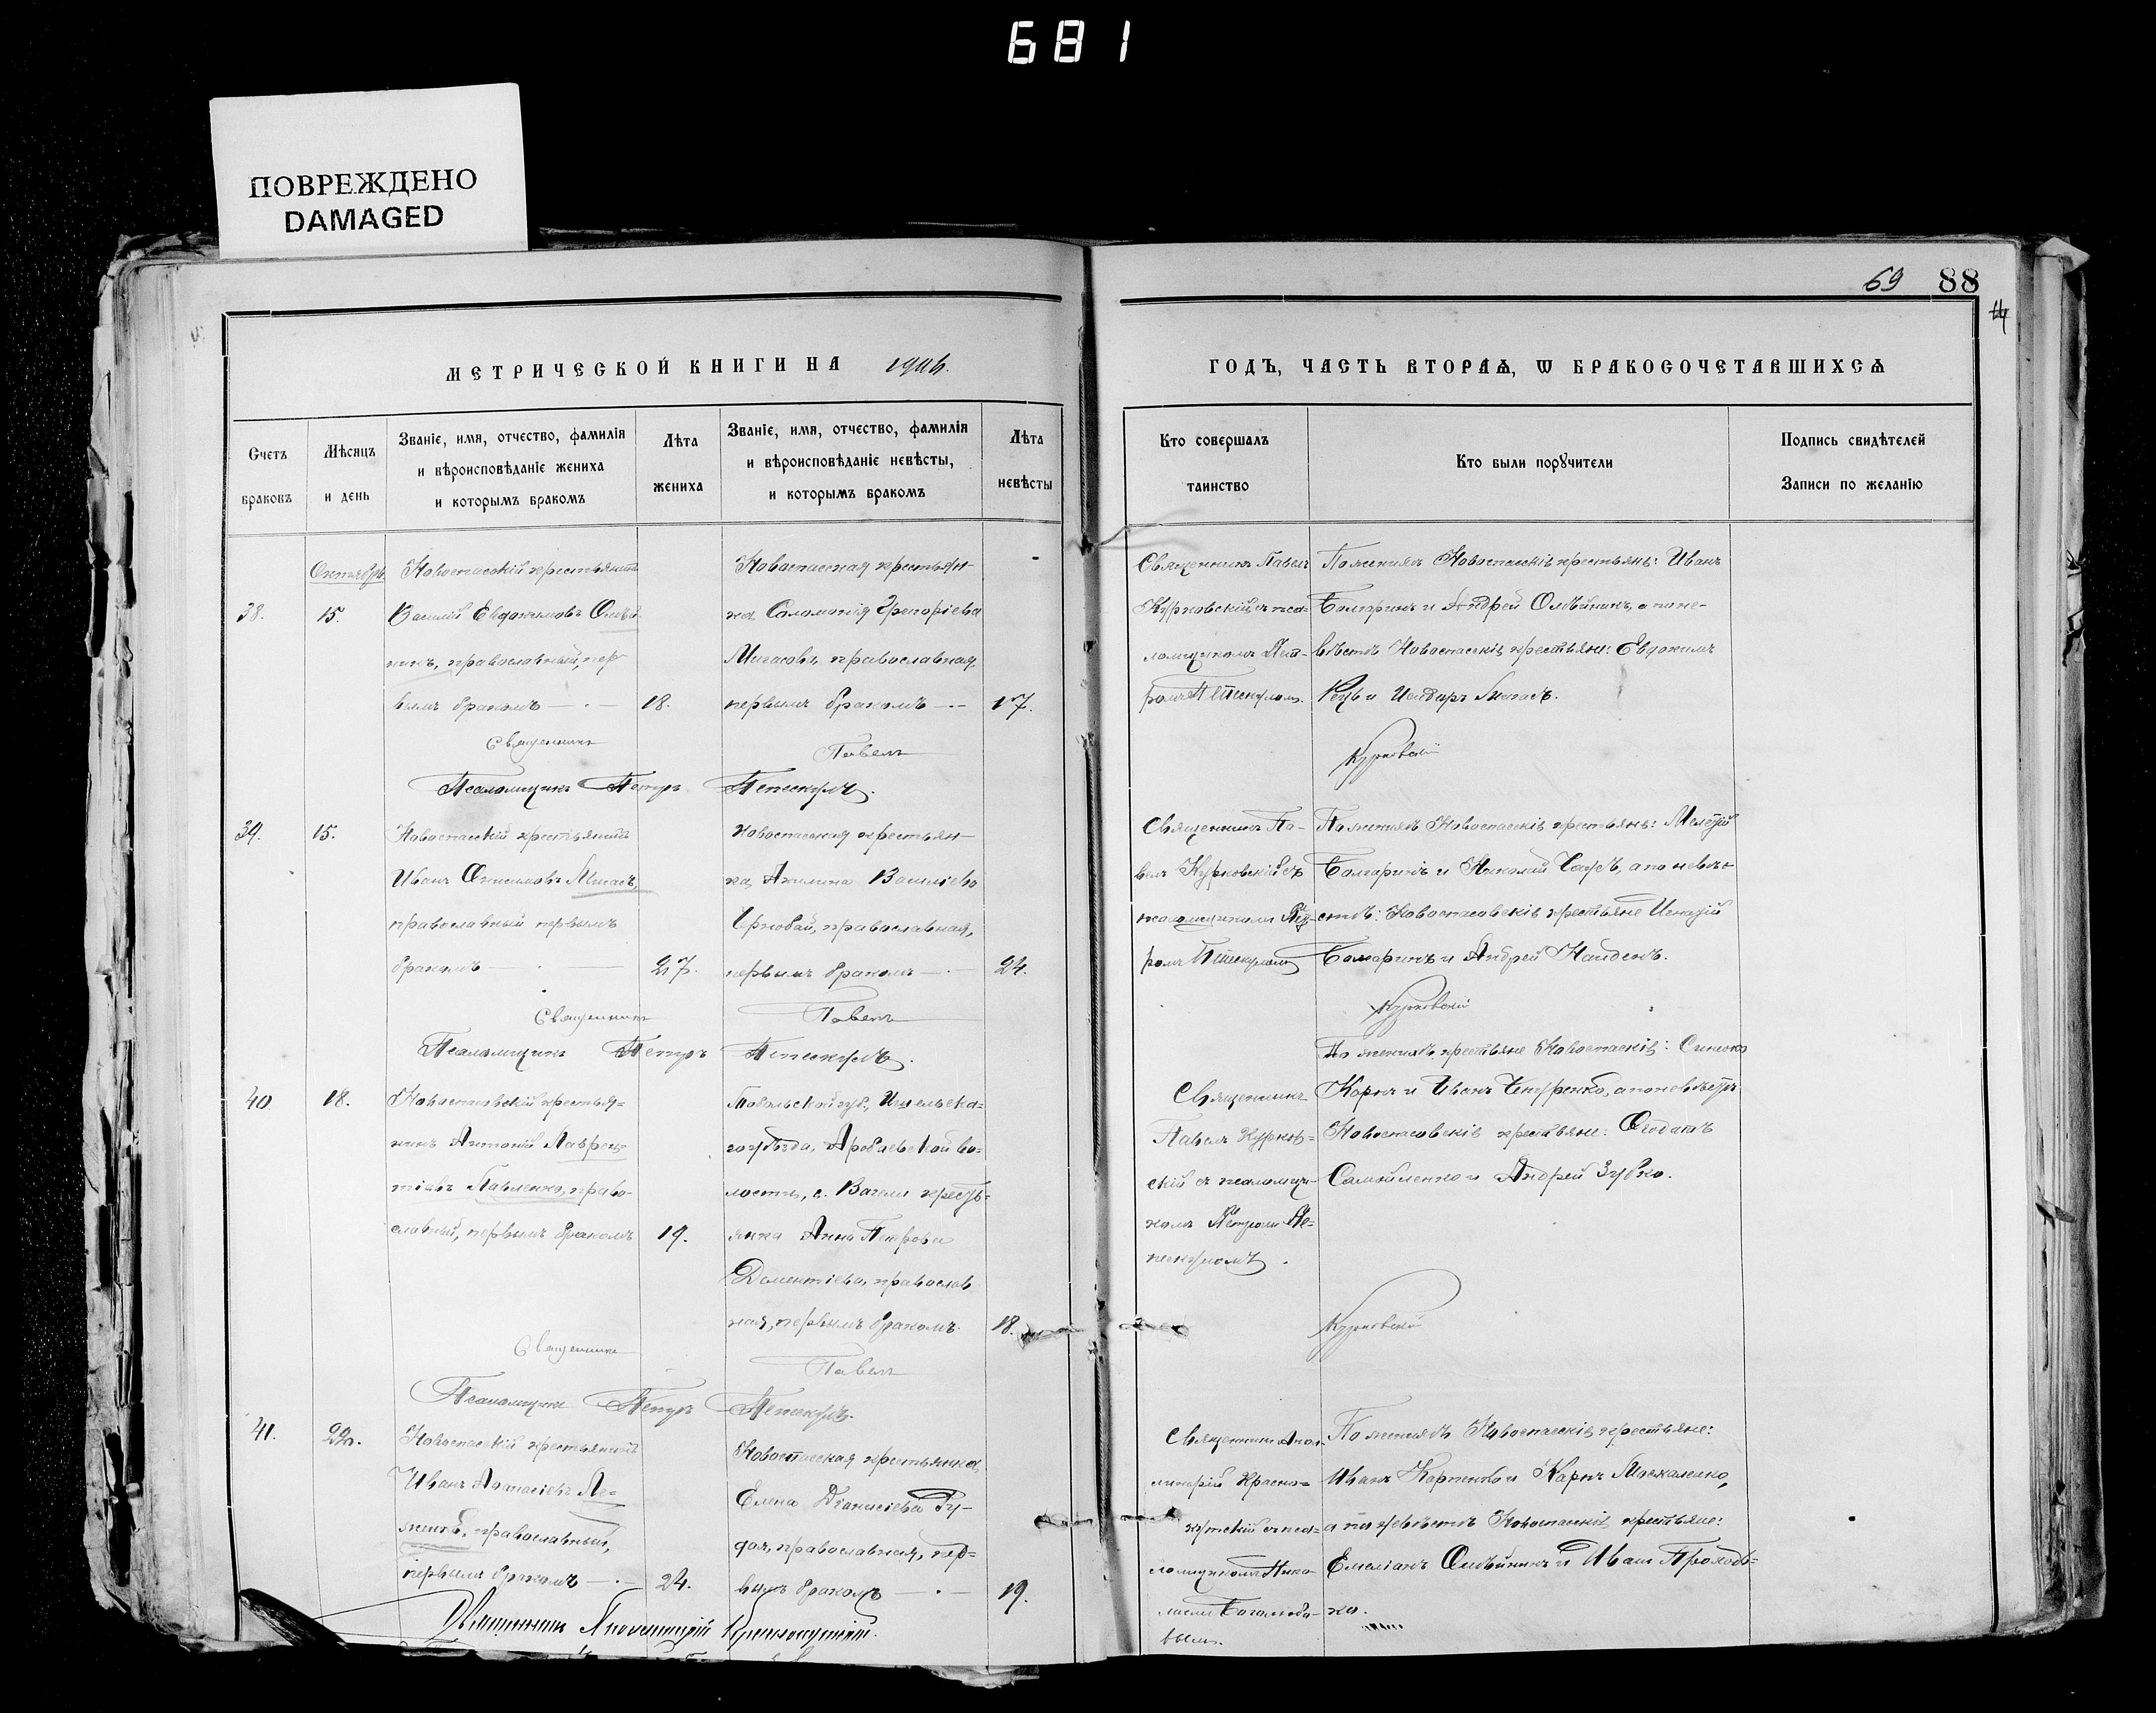 681
ПОВРЕЖДЕНО
DAMAGED
69 88
МЕТРИЧЕСКОЙ КНИГИ НА 1906.
ГОДЪ, ЧАСТЬ ВТОРАЯ, Ѡ БРАКОСОЧЕТАВШИХСѦ
Счетъ браковъ
Мѣсяцъ и день
Званіе, имя, отчество, фамилія и вѣроисповѣданіе жениха и которымъ бракомъ
Лѣта жениха
Званіе, имя, отчество, фамилія и вѣроисповѣданіе невѣсты, и которымъ бракомъ
Лѣта невѣсты
Кто совершалъ таинство
Кто были порꙋчители
Подпись свидѣтелей Записи по желанію
Октябрь
38.
15.
Новоспасскій крестьянинъ
Василій Евдокимовъ Олѣй-
никъ, православный, пер-
вымъ бракомъ
18.
Новоспасская крестьян-
ка Соломонія Григоріева
Мигасовъ, православная,
первымъ бракомъ
17.
Священникъ Павелъ
Курковскій съ пса-
ломщикомъ Пет-
ромъ
По женихѣ Новоспасскіе крестьяне: Иванъ
Болгаринъ и Андрей Олѣйникъ, а по не-
вѣстѣ Новоспасскіе крестьяне: Евдокимъ
и Мигасъ.
Священникъ Павелъ Курковскій
Псаломщикъ Петръ
39.
15.
Новоспасскій крестьянинъ
Иванъ Онисимовъ Мигасъ,
православный первымъ
бракомъ
27.
Новоспасская крестьян-
ка Акилина Василіева
православная,
первымъ бракомъ
24.
Священникъ Па-
велъ Курковскій съ
псаломщикомъ Пет-
ромъ
По женихѣ Новоспасскіе крестьяне: Мелетій
Болгаринъ и Николай а по невѣ-
стѣ: Новоспасовскіе крестьяне Игнатій
Болгаринъ и Андрей Найденъ.
Священникъ Павелъ Курковскій
Псаломщикъ Петръ
40.
18.
Новоспасовскій крестья-
нинъ Антоній Лаврен-
тіевъ Павленко, право-
славный, первымъ бракомъ
19.
Тобольской губ.,
го уѣзда, во-
лости, с. кресть-
янка Анна Петрова
Дементіева, православ-
ная, первымъ бракомъ.
18.
Священникъ
Павелъ Курков-
скій съ псаломщи-
комъ Петромъ
По женихѣ крестьяне Новоспасскіе: Симеонъ
Карпъ и Иванъ а по невѣстѣ
Новоспасовскіе крестьяне: Ѳеодотъ
Самойленко и Андрей Зубко.
Священникъ Павелъ Курковскій
Псаломщикъ Петръ
41.
22.
Новоспасскій крестьянинъ
Иванъ Аѳанасіевъ
православный,
первымъ бракомъ
24.
Новоспасская крестьянка
Елена Діонисіева Гу-
дая, православная, пер-
вымъ бракомъ
19.
Священникъ Апол-
линарій Красно-
кутскій съ пса-
ломщикомъ Нико-
лаемъ
По женихѣ Новоспасскіе крестьяне:
Иванъ и Карпъ Москаленко,
а по невѣстѣ Новоспасскіе крестьяне:
Емеліанъ Олѣйникъ и Иванъ
Священникъ Аполлинарій Краснокутскій.